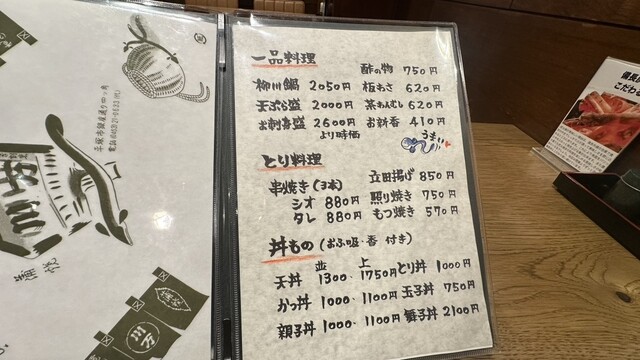 一品料理
酢の物 750円
柳川鍋 2050円 板わさ 620円
天ぷら盛 2000円 茶わんむし 620円
お刺身盛 2600円 お新香 410円
より時価
うまい
とり料理
串焼き(3本) 立田揚げ 850円
シオ 880円 照り焼き 750円
タレ 880円 もつ焼き 570円
丼もの (お吸・香 付き)
並 上
天丼 1300・1750円 とり丼 1000円
かつ丼 1000・1100円 玉子丼 750円
親子丼 1000・1100円 舞子丼 2100円
川万
蒲焼
川万
こだわ